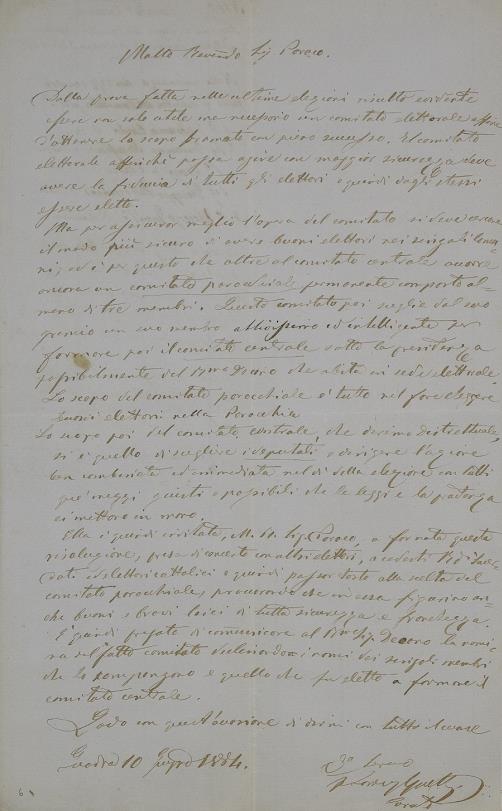 Molto Revendo Sig Paroco.
Dalla prova fatta nelle ultime elezioni risultò evidente
essere non solo utile ma necessario un comitato elettorale affine
d'ottenere lo scopo bramato con pieno successo. Il comitato
elettorale affinchè possa agire con maggior sicurezza deve
avere la fiducia di tutti gli elettori e quindi dagli stessi
essere eletti.
Ma per assicurar meglio l'opera del comitato si deve cercare
il modo più sicuro di avere buoni elettori nei singoli Comu-
ni, ed è per questo che oltre al comitato centrale occorre
ancora un comitato parochiale permanente composto al-
meno di tre membri. Questo comitato poi sceglie dal suo
gremio un suo membro ed intelligente per
formare poi il comitato centrale sotto la presidenza
possibilmente del Decano che abita in sede elettorale
Lo scopo del comitato parochiale è tutto nel fare eleggere
buoni elettori nella Parochia
Lo scopo poi del comitato centrale, che diremo distrettuale,
si è quello di scegliere i deputati e dirigere l'azione
ben combinata ed nel dì della elezione con tutti
que' mezzi giusti e possibili che le leggi e la prudenza
ci mettono in mano.
Ella è quindi invitata, M. R. Sig. Paroco, a questa
risoluzione, presa di concerto con altri elettori,
dati ed elettori cattolici e quindi passar tosto alla scelta del
comitato parochiale, procurando che in essa figurino an-
che buoni e bravi laici di tutta sicurezza e franchezza.
È quindi pregato di comunicare al Sig. Decano la nomi-
na del fatto comitato i nomi dei singoli membri
che lo compongono e quello che fu eletto a formare il
comitato centrale.
Godo con quest'occasione di dirmi con tutto il cuore
10 1884.